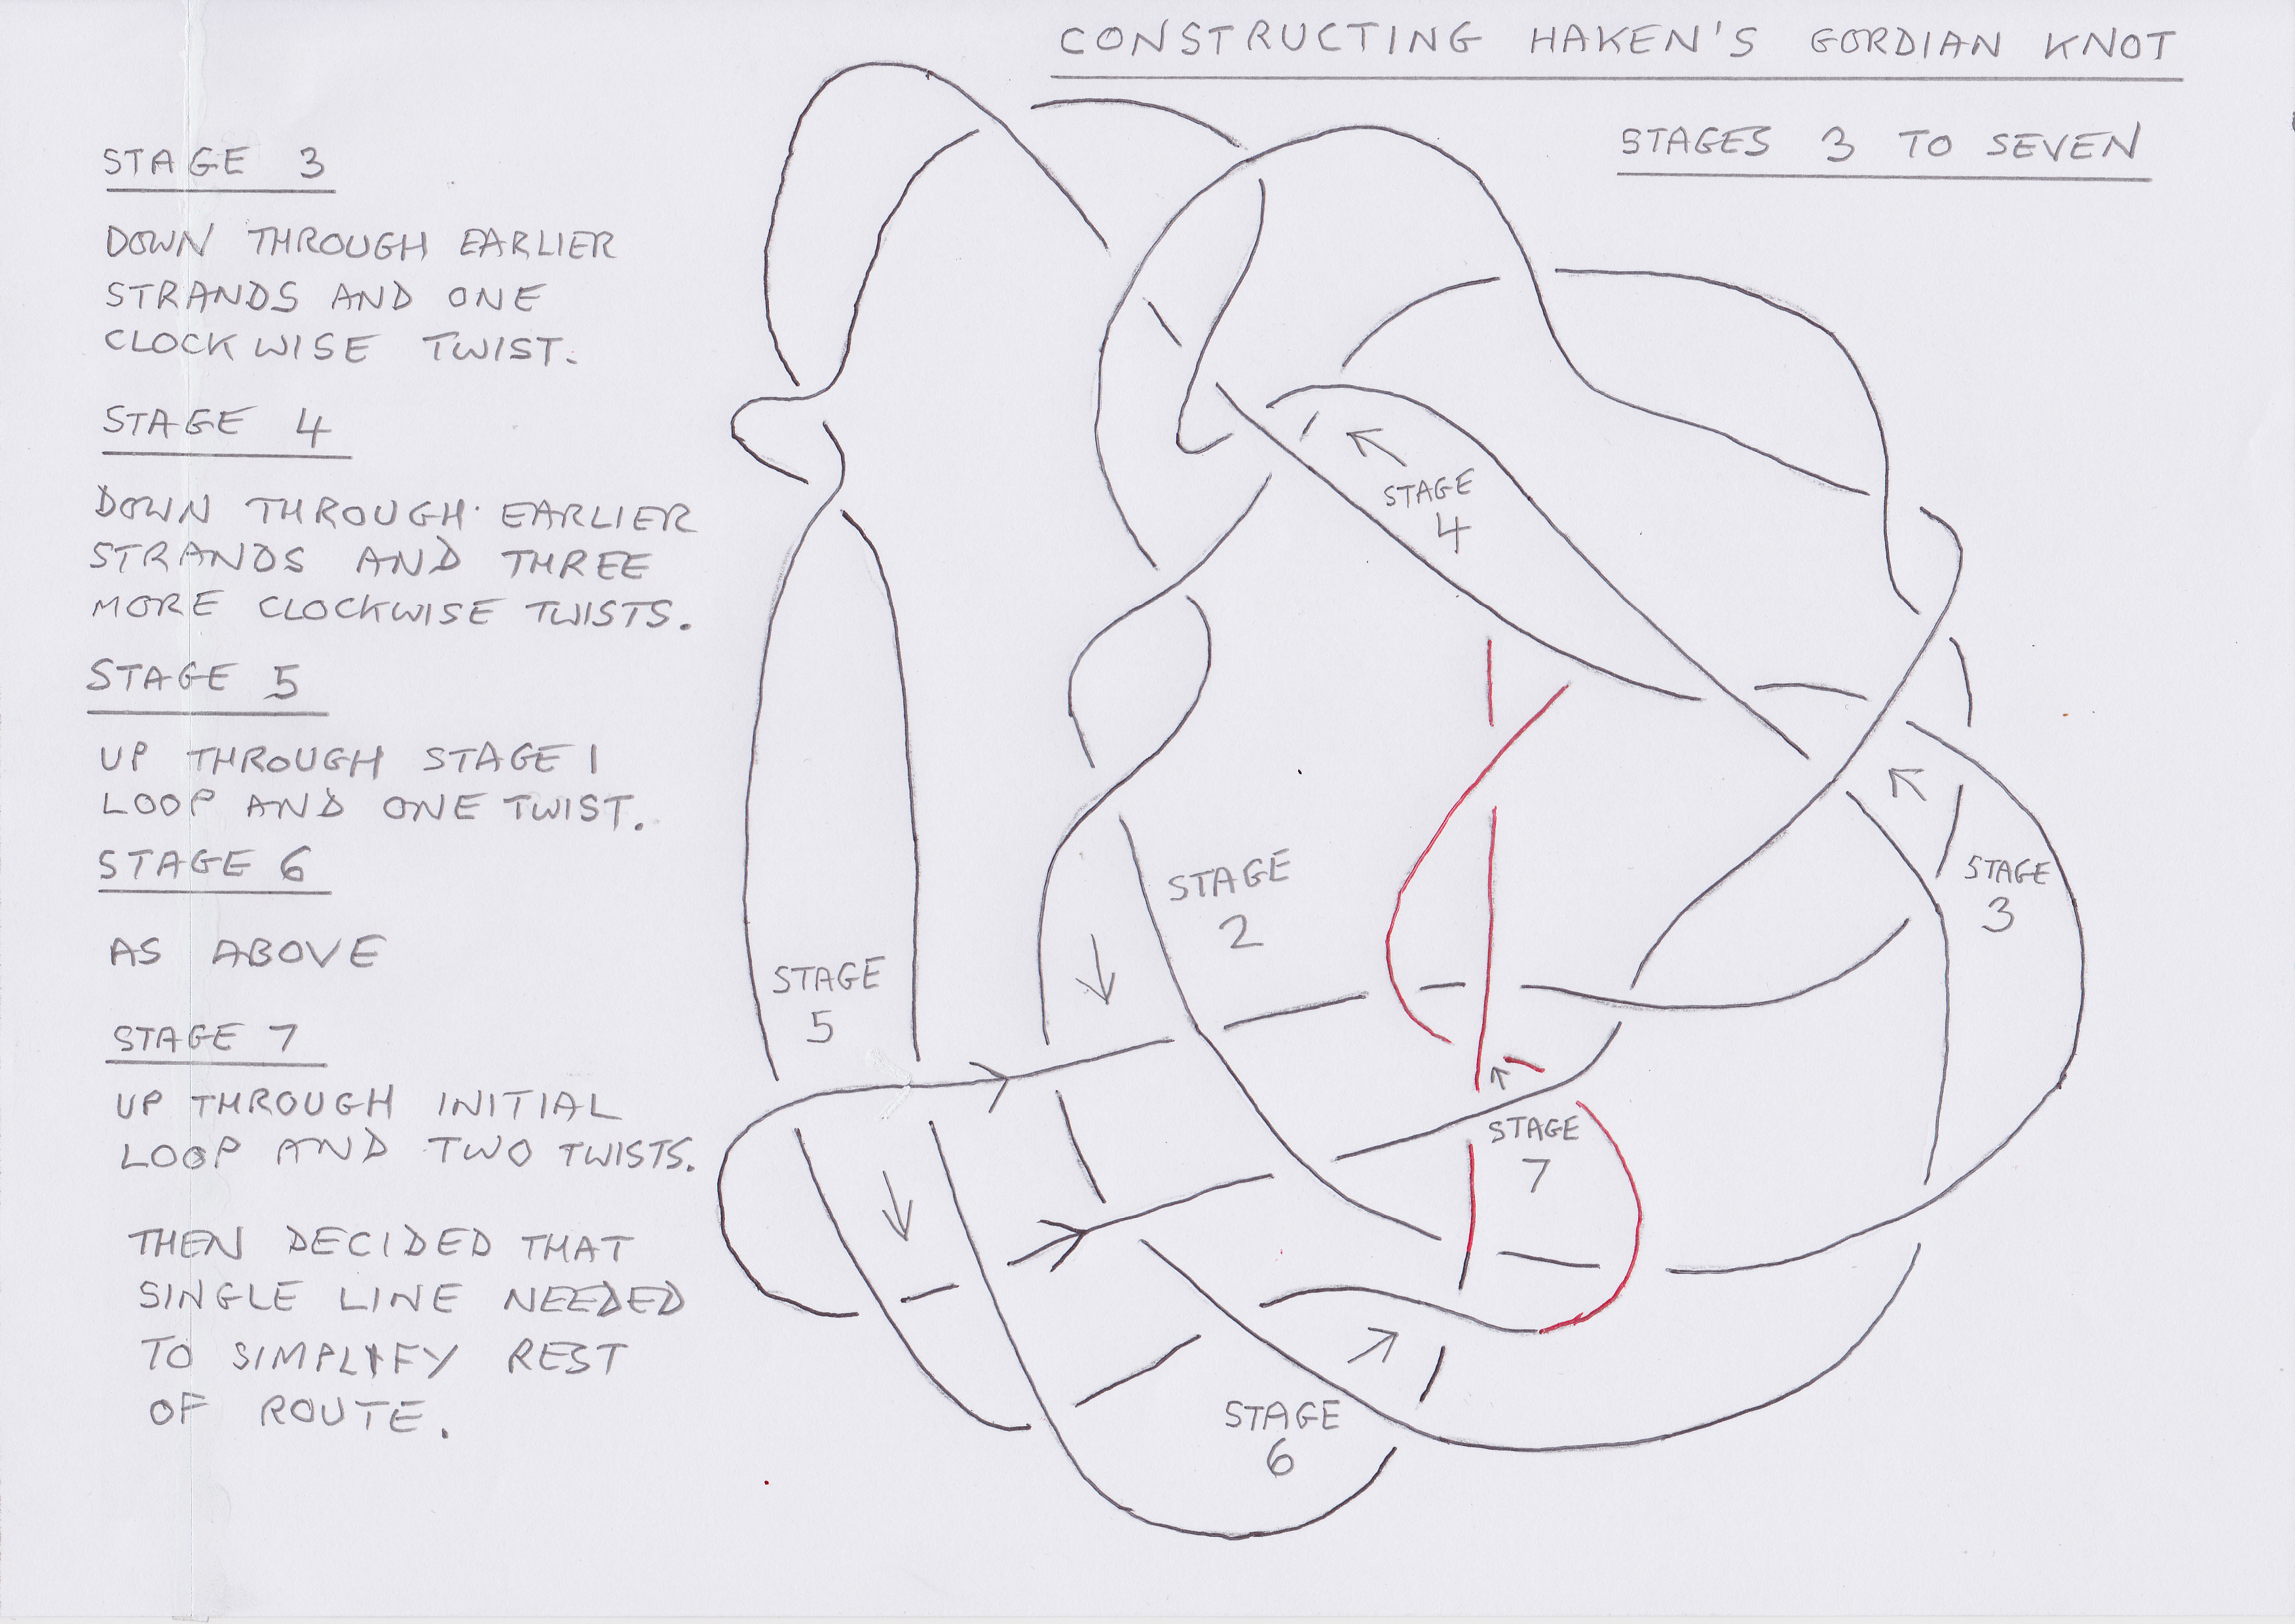 CONSTRUCTING HAKEN'S GORDIAN KNOT
STAGES 3 TO SEVEN
STAGE 3
DOWN THROUGH EARLIER
STRANDS AND ONE
CLOCKWISE TWIST.
STAGE 4
DOWN THROUGH EARLIER
STRANDS AND THREE
MORE CLOCKWISE TWISTS.
STAGE 5
UP THROUGH STAGE 1
LOOP AND ONE TWIST.
STAGE 6
AS ABOVE
STAGE 7
UP THROUGH INITIAL
LOOP AND TWO TWISTS.
THEN DECIDED THAT
SINGLE LINE NEEDED
TO SIMPLIFY REST
OF ROUTE.
STAGE
4
STAGE
3
STAGE
2
STAGE
5
STAGE
7
STAGE
6